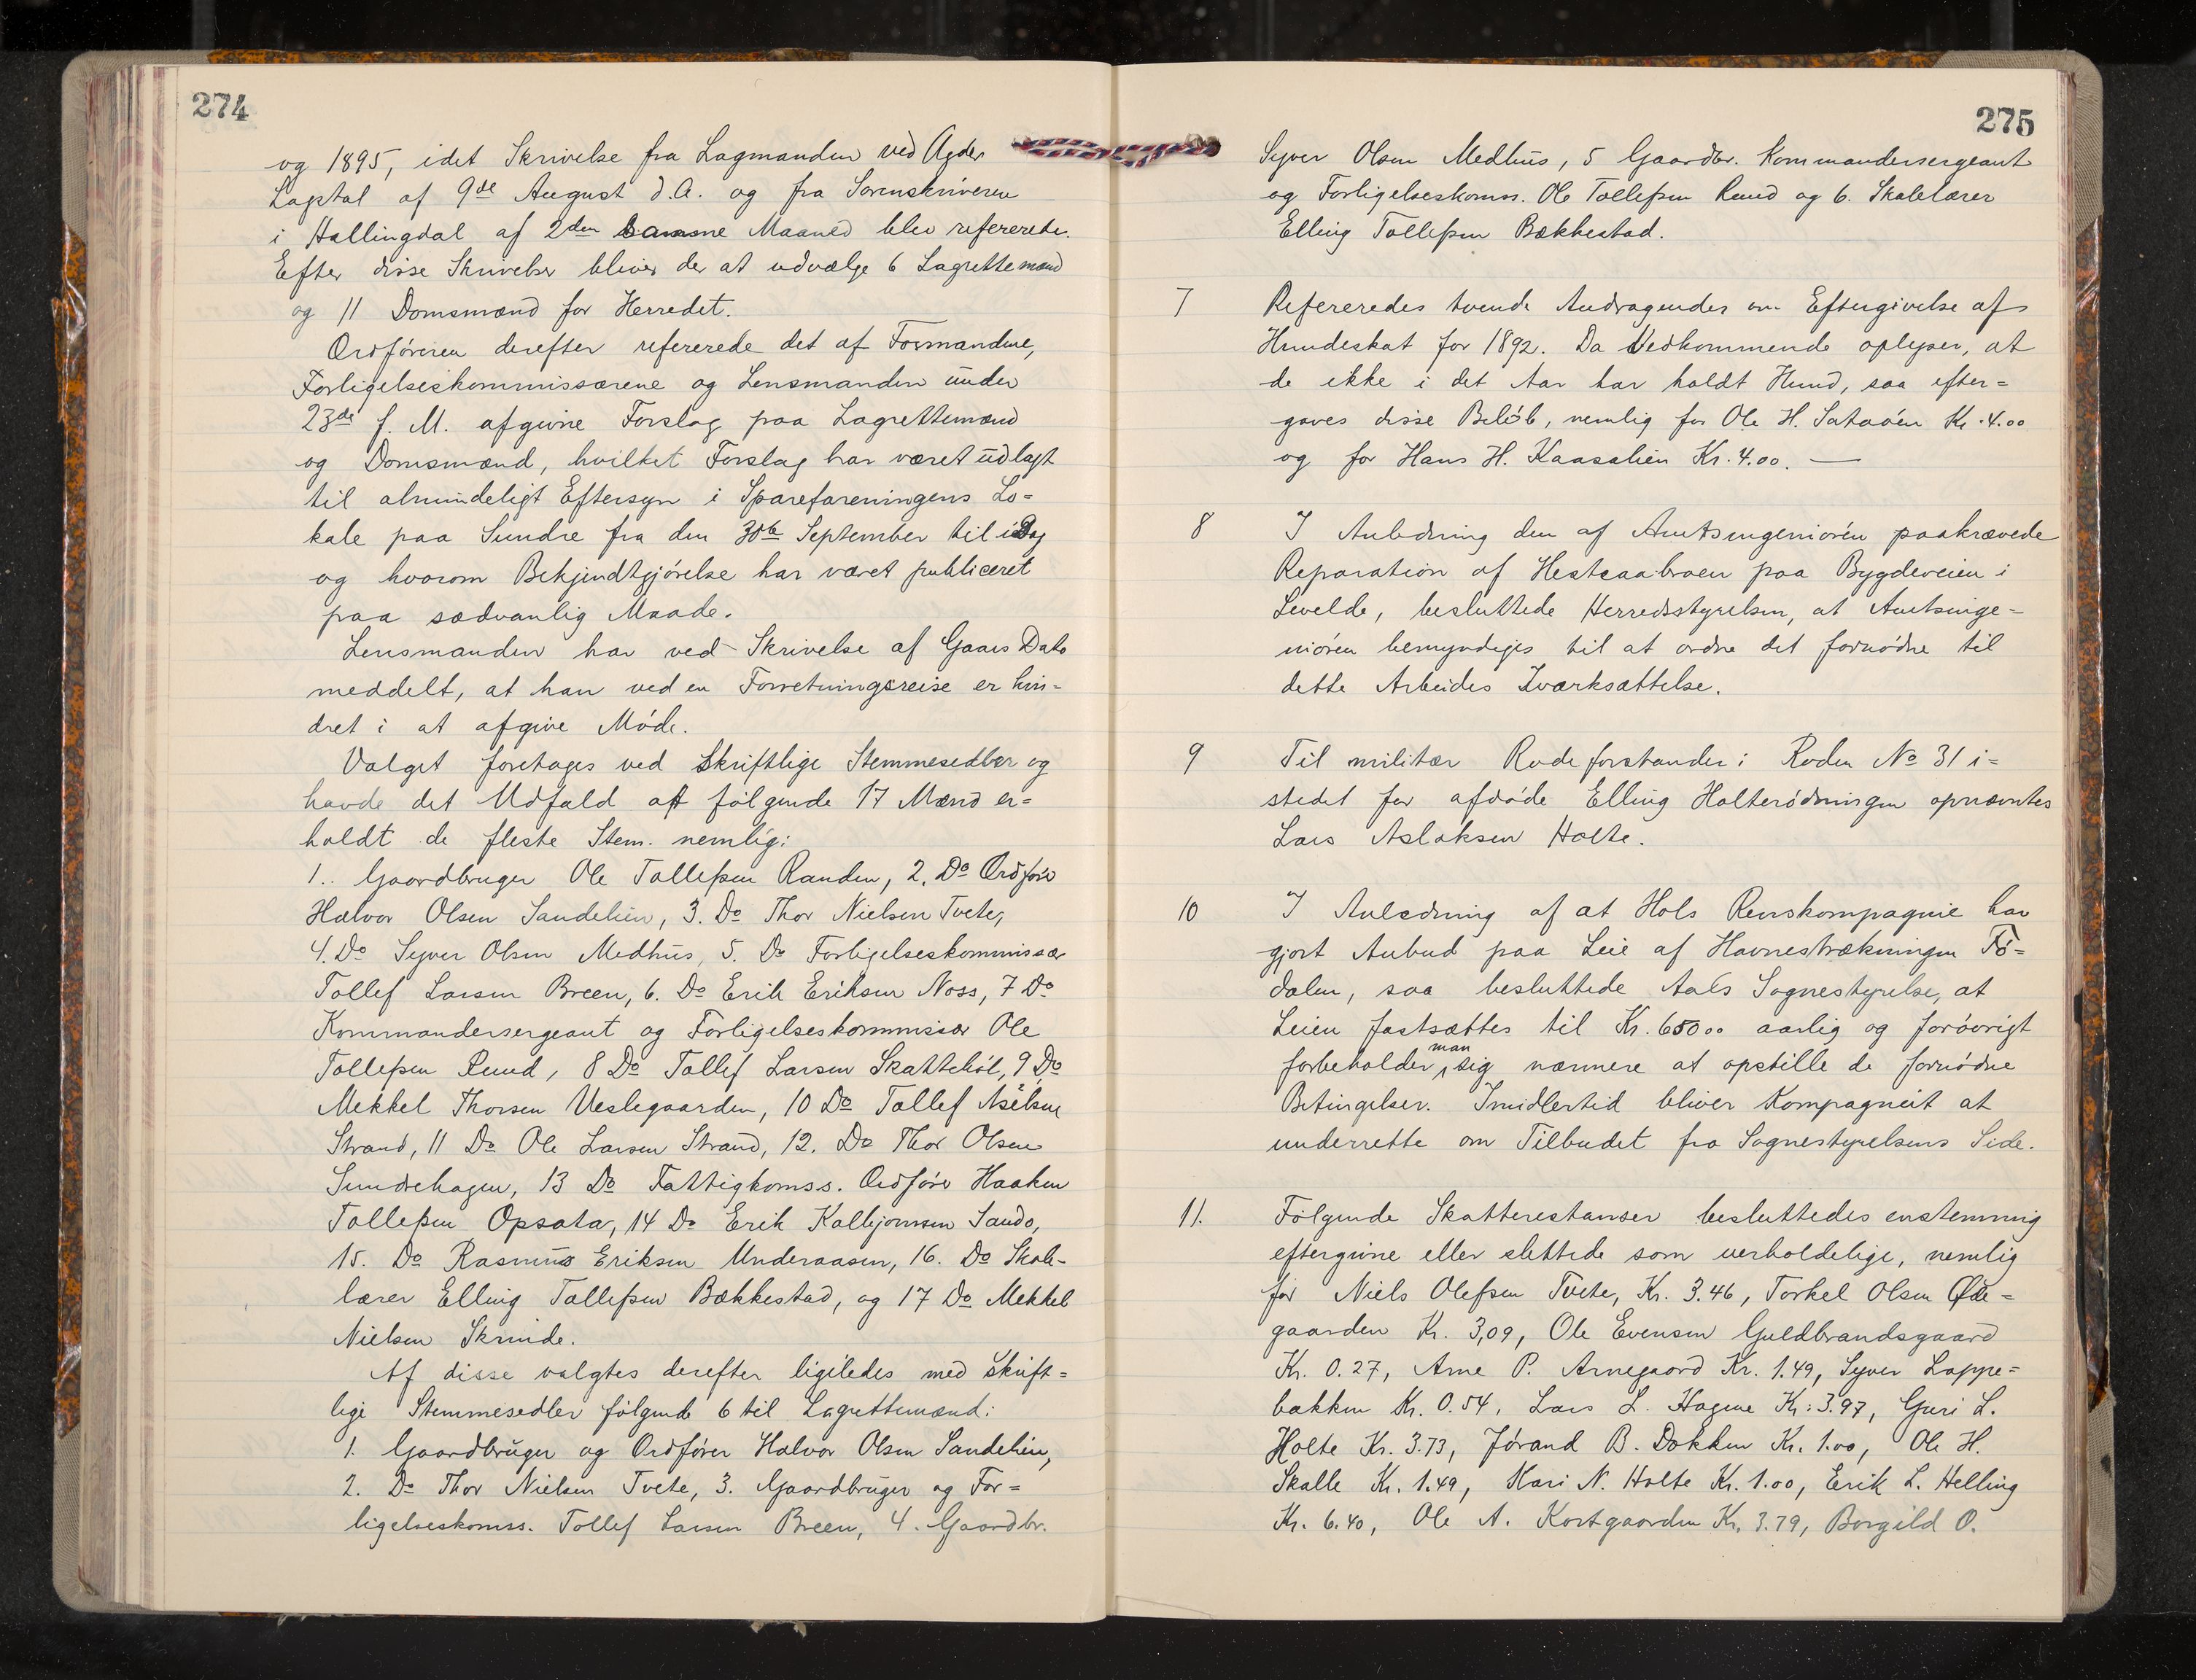 274
og 1895, idet Skrivelse fra Lagmanden ved Agder
Lagstol af 9de August d.A. og fra Sorenskriveren
i Hallingdal af 2den samme Maaned blev refererede.
Efter disse Skrivelser bliver der at udvælge 6 Lagrettemænd
og 11 Domsmænd for Herredet.
Ordføreren derefter refererede det af Formændene,
Forligelseskommissærene og Lensmanden under
23de f. M. afgivne Forslag paa Lagrettemænd
og Domsmænd, hvilket Forslag har været udlagt
til almindeligt Eftersyn i Spareforeningens Lo=
kale paa Sundre fra den 30te September til idag
og hvorom Bekjendtgjørelse har været publiceret
paa sædvanlig Maade.
Lensmanden har ved Skrivelse af Gaars Dato
meddelt, at han ved en Forretningsreise er hin=
dret i at afgive Møde.
Valget foretages ved Skriftlige Stemmesedler og
havde det Udfald at følgende 17 Mænd er=
holdt de fleste Stem. nemlig:
1.. Gaardbruger Ole Tollefsen Randen, 2. Do Ordfører
Halvor Olsen Sandelien, 3. Do Thor Nielsen Tvete,
4. Do Syver Olsen Medhus, 5. Do Forligelseskommissær
Tollef Larsen Breen, 6. Do Erik Eriksen Noss, 7 Do
Kommandersergeant og Forligelseskommissær Ole
Tollefsen Ruud, 8 Do Tollef Larsen Skattebøl, 9 Do
Mekkel Thorsen Veslegaarden, 10 Do Tollef
Strand, 11 Do Ole Larsen Strand, 12. Do Thor Olsen
Sundrehagen, 13 Do Fattigkomss. Ordfører Haaken
Tollefsen Opsata, 14 Do Erik Kolbjørnsen Sando,
15. Do Rasmus Eriksen Underaasen, 16. Do Skole-
lærer Elling Tollefsen Bækkestad, og 17 Do Mekkel
Nielsen Skrinde.
Af disse valgtes derefter ligeledes med skrift=
lige Stemmesedler følgende 6 til Lagrettemænd:
1. Gaardbruger og Ordfører Halvor Olsen Sandelien,
2. Do Thor Nielsen Tvete, 3. Gaardbruger og For=
ligelseskomss. Tollef Larsen Breen, 4. Gaardbr.
275
Syver Olsen Medhus, 5 Gaardbr. Kommandersergeant
og Forligelseskomss. Ole Tollefsen Ruud og 6. Skolelærer
Elling Tollefsen Bækkestad.
7 Refereredes tvende Andragender om Eftergivelse af
Hundeskat for 1892. Da Vedkommende oplyser, at
de ikke i det Aar har holdt Hund, saa efter=
gaves disse Beløb, nemlig for Ole H. Sataøen Kr. 4.00
og for Hans H. Kaasalien Kr. 4.00. —
8 I Anledning den af Amtsingeniøren paakrævede
Reparation af Hestsaabroen paa Bygdeveien i
Levelde, besluttede Herredsstyrelsen, at Amtsinge=
niøren bemyndiges til at ordne det fornødne til
dette Arbeides Iværksættelse.
9 Til militær Rodeforstander i Roden No 31 i=
stedet for afdøde Elling Holterødningen opnævntes
Lars Aslaksen Holte.
10 I Anledning af at Hols Renskompagnie har
gjort Anbud paa Leie af Havnestrækningen Fø=
dalen, saa besluttede Aals Sognestyrelse, at
Leien fastsættes til Kr. 65000 aarlig og forøvrigt
forbeholder man sig nærmere at opstille de fornødne
Betingelser. Imidlertid bliver Kompagniet at
underrette om Tilbudet fra Sognestyrelsens Side.
11. Følgende Skatterestanser besluttedes enstemmig
eftergivne eller slettede som uerholdelige, nemlig
for Niels Olefsen Tvete, Kr. 3.46, Torkel Olsen Øde=
gaarden Kr. 3,09, Ole Evensen Guldbrandsgaard
Kr. 0.27, Arne P. Arnegaard Kr. 1.49, Syver Lappe=
bakken Kr. 0.54, Lars L. Hagene Kr: 3.97, Guri L.
Holte Kr. 3.73, Jørand B. Dokken Kr. 1.00, Ole H.
Skalle Kr. 1.49, Kari N. Holte Kr. 1.00, Erik L. Helling
Kr. 6.40, Ole A. Kortgaarden Kr. 3.79, Borgild O.